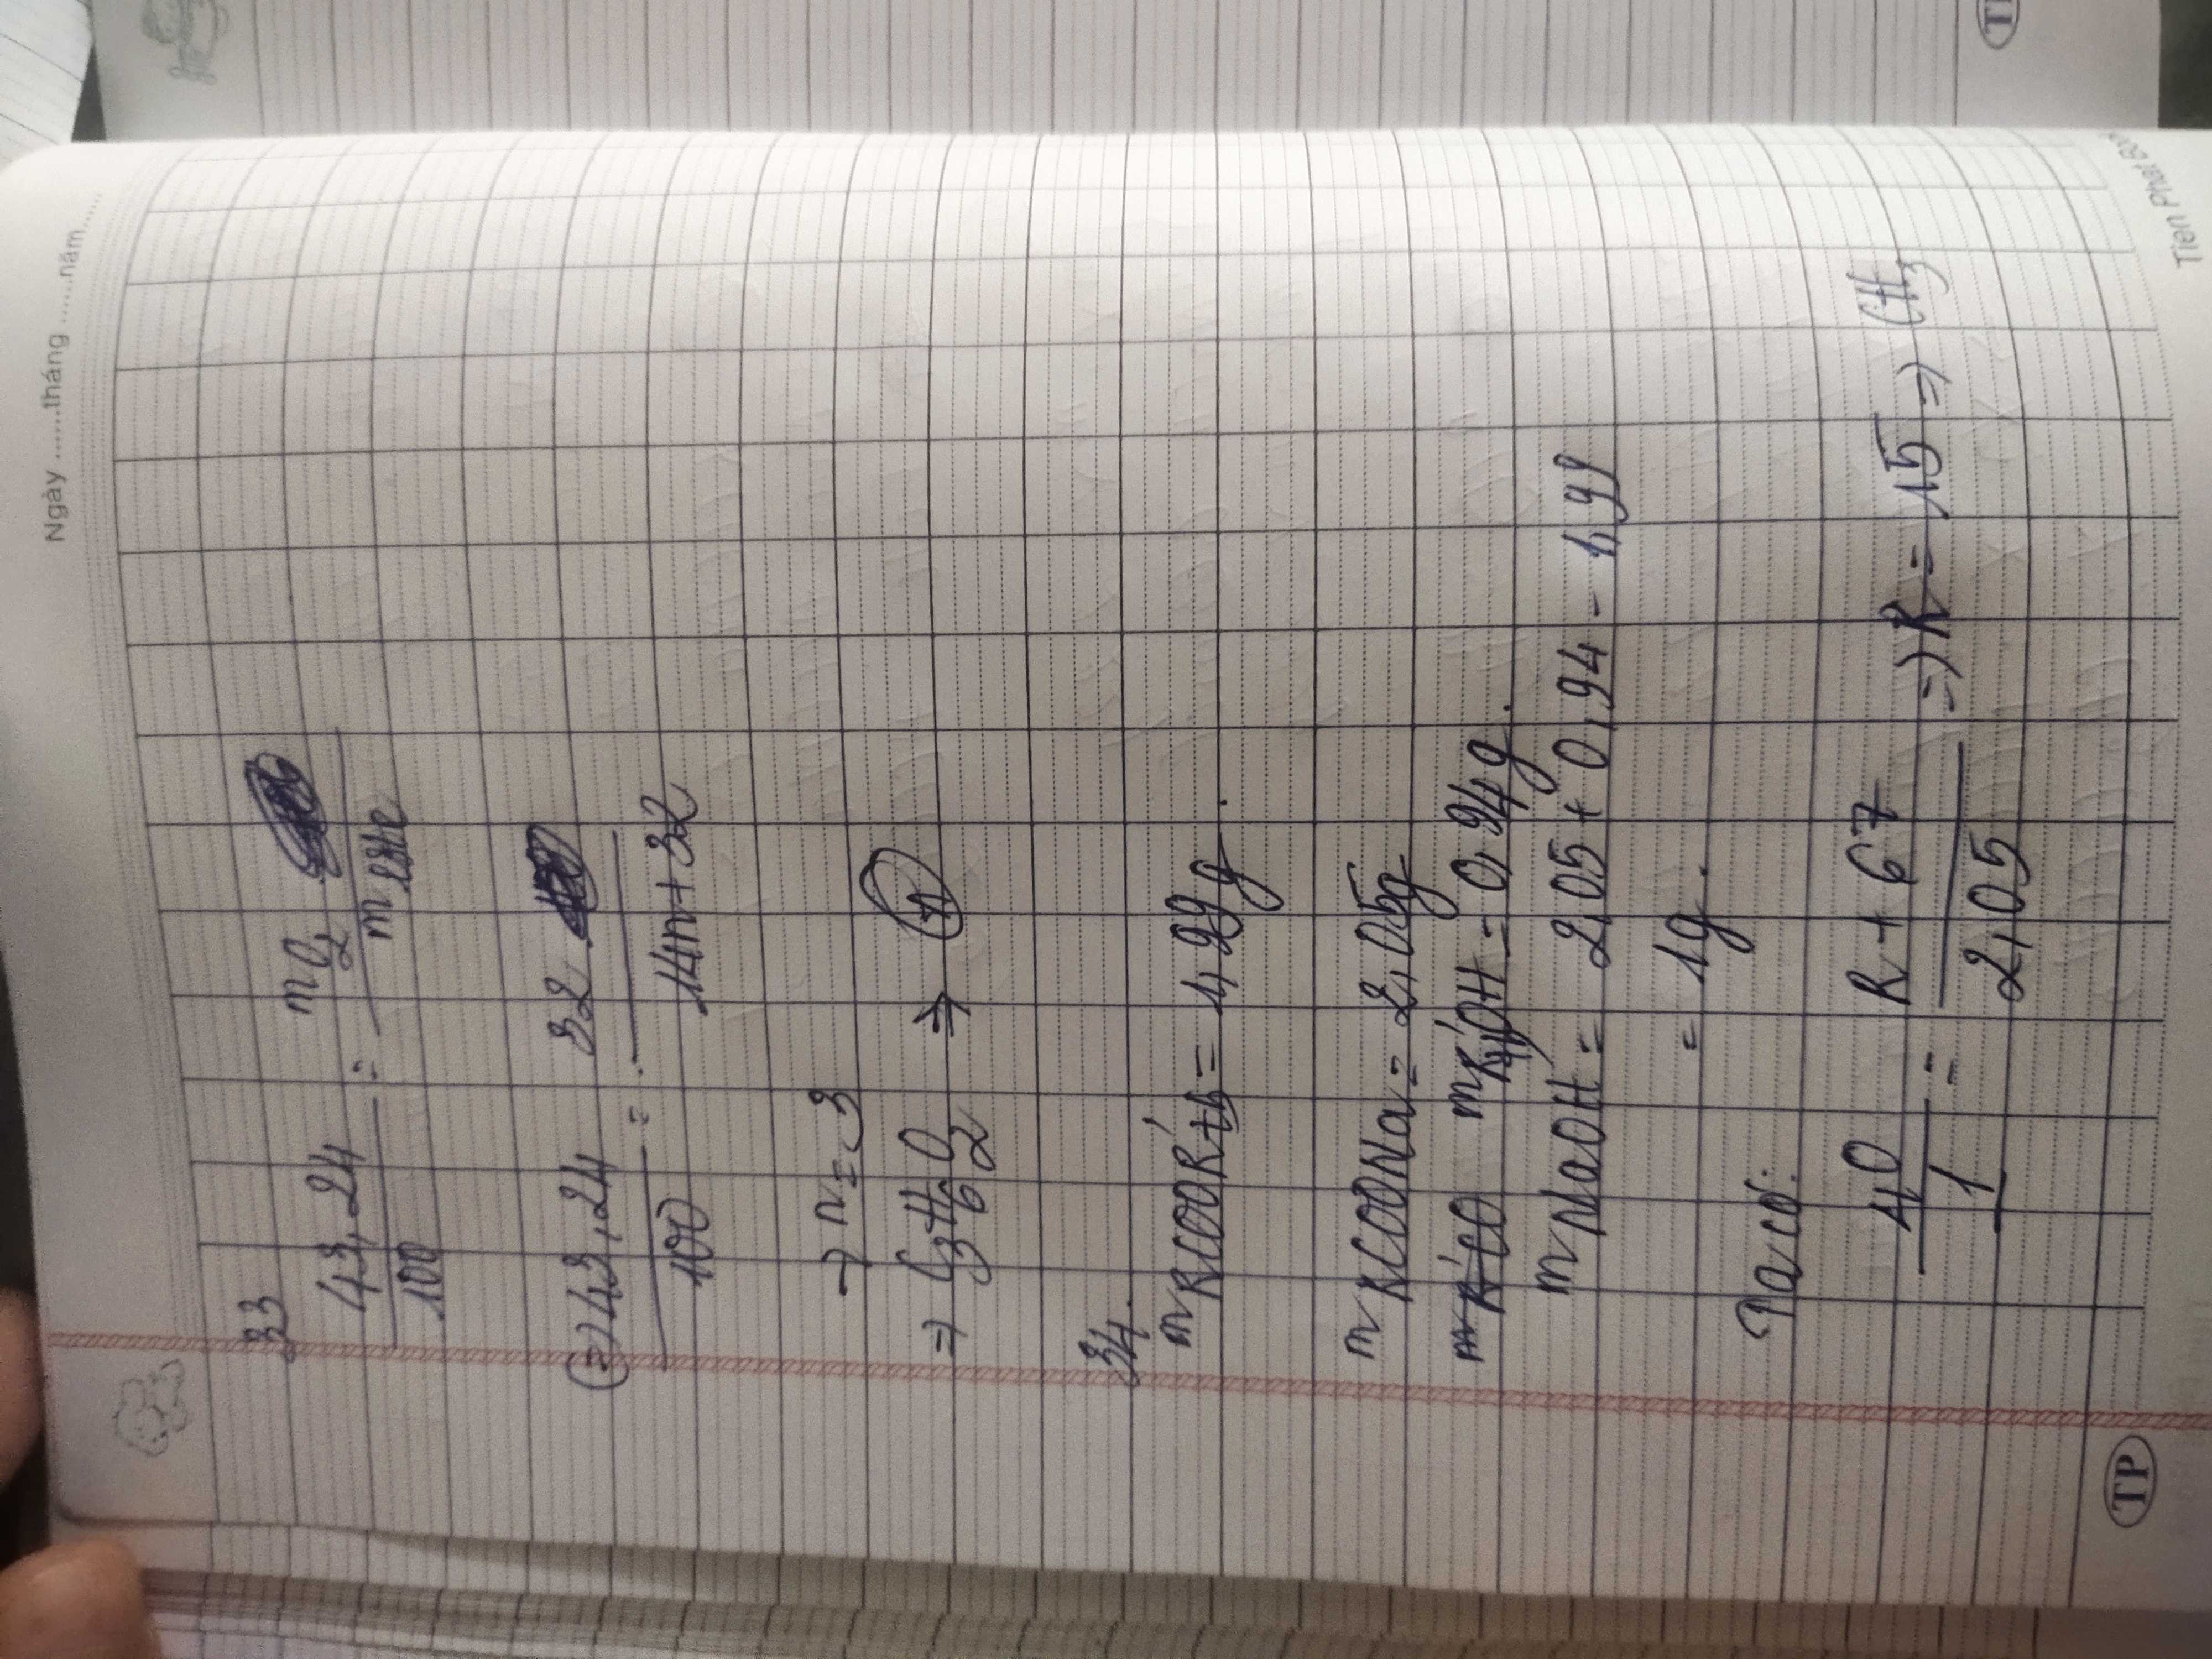 Ngày ......tháng ......năm......
33
43,24 / 100 = mO2 / m este
(=) 43,24 / 100 = 32 / 14n+32
→ n = 3
=> C3H6O2 => A
34.
mRCOOR'tb = 1,99g.
mRCOONa = 2,05g
mR'CO mR'tbOH = 0,94g.
mNaOH = 2,05 + 0,94 - 1,99
= 1g.
Ta có:
40 / 1 = R + 67 / 2,05 => R = 15 => CH3
TP
Tien Phat